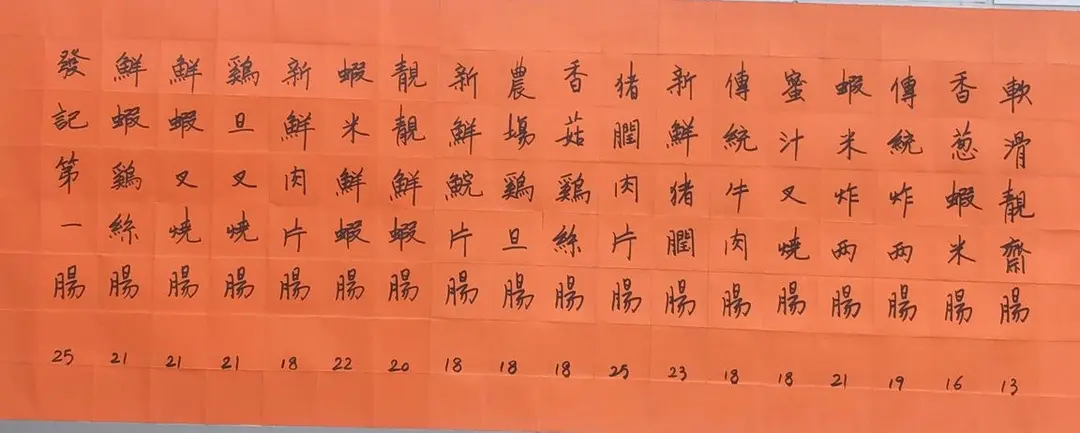 軟滑靚齋腸 13
香葱蝦米腸 16
傳統炸兩腸 19
蝦米炸兩腸 21
蜜汁叉燒腸 18
傳統牛肉腸 18
新鮮猪膶腸 23
猪膶肉片腸 25
香菇鷄絲腸 18
農場鷄旦腸 18
新鮮鯇片腸 18
靚靚鮮蝦腸 20
蝦米鮮蝦腸 22
新鮮肉片腸 18
鷄旦叉燒腸 21
鮮蝦叉燒腸 21
鮮蝦鷄絲腸 21
發記第一腸 25